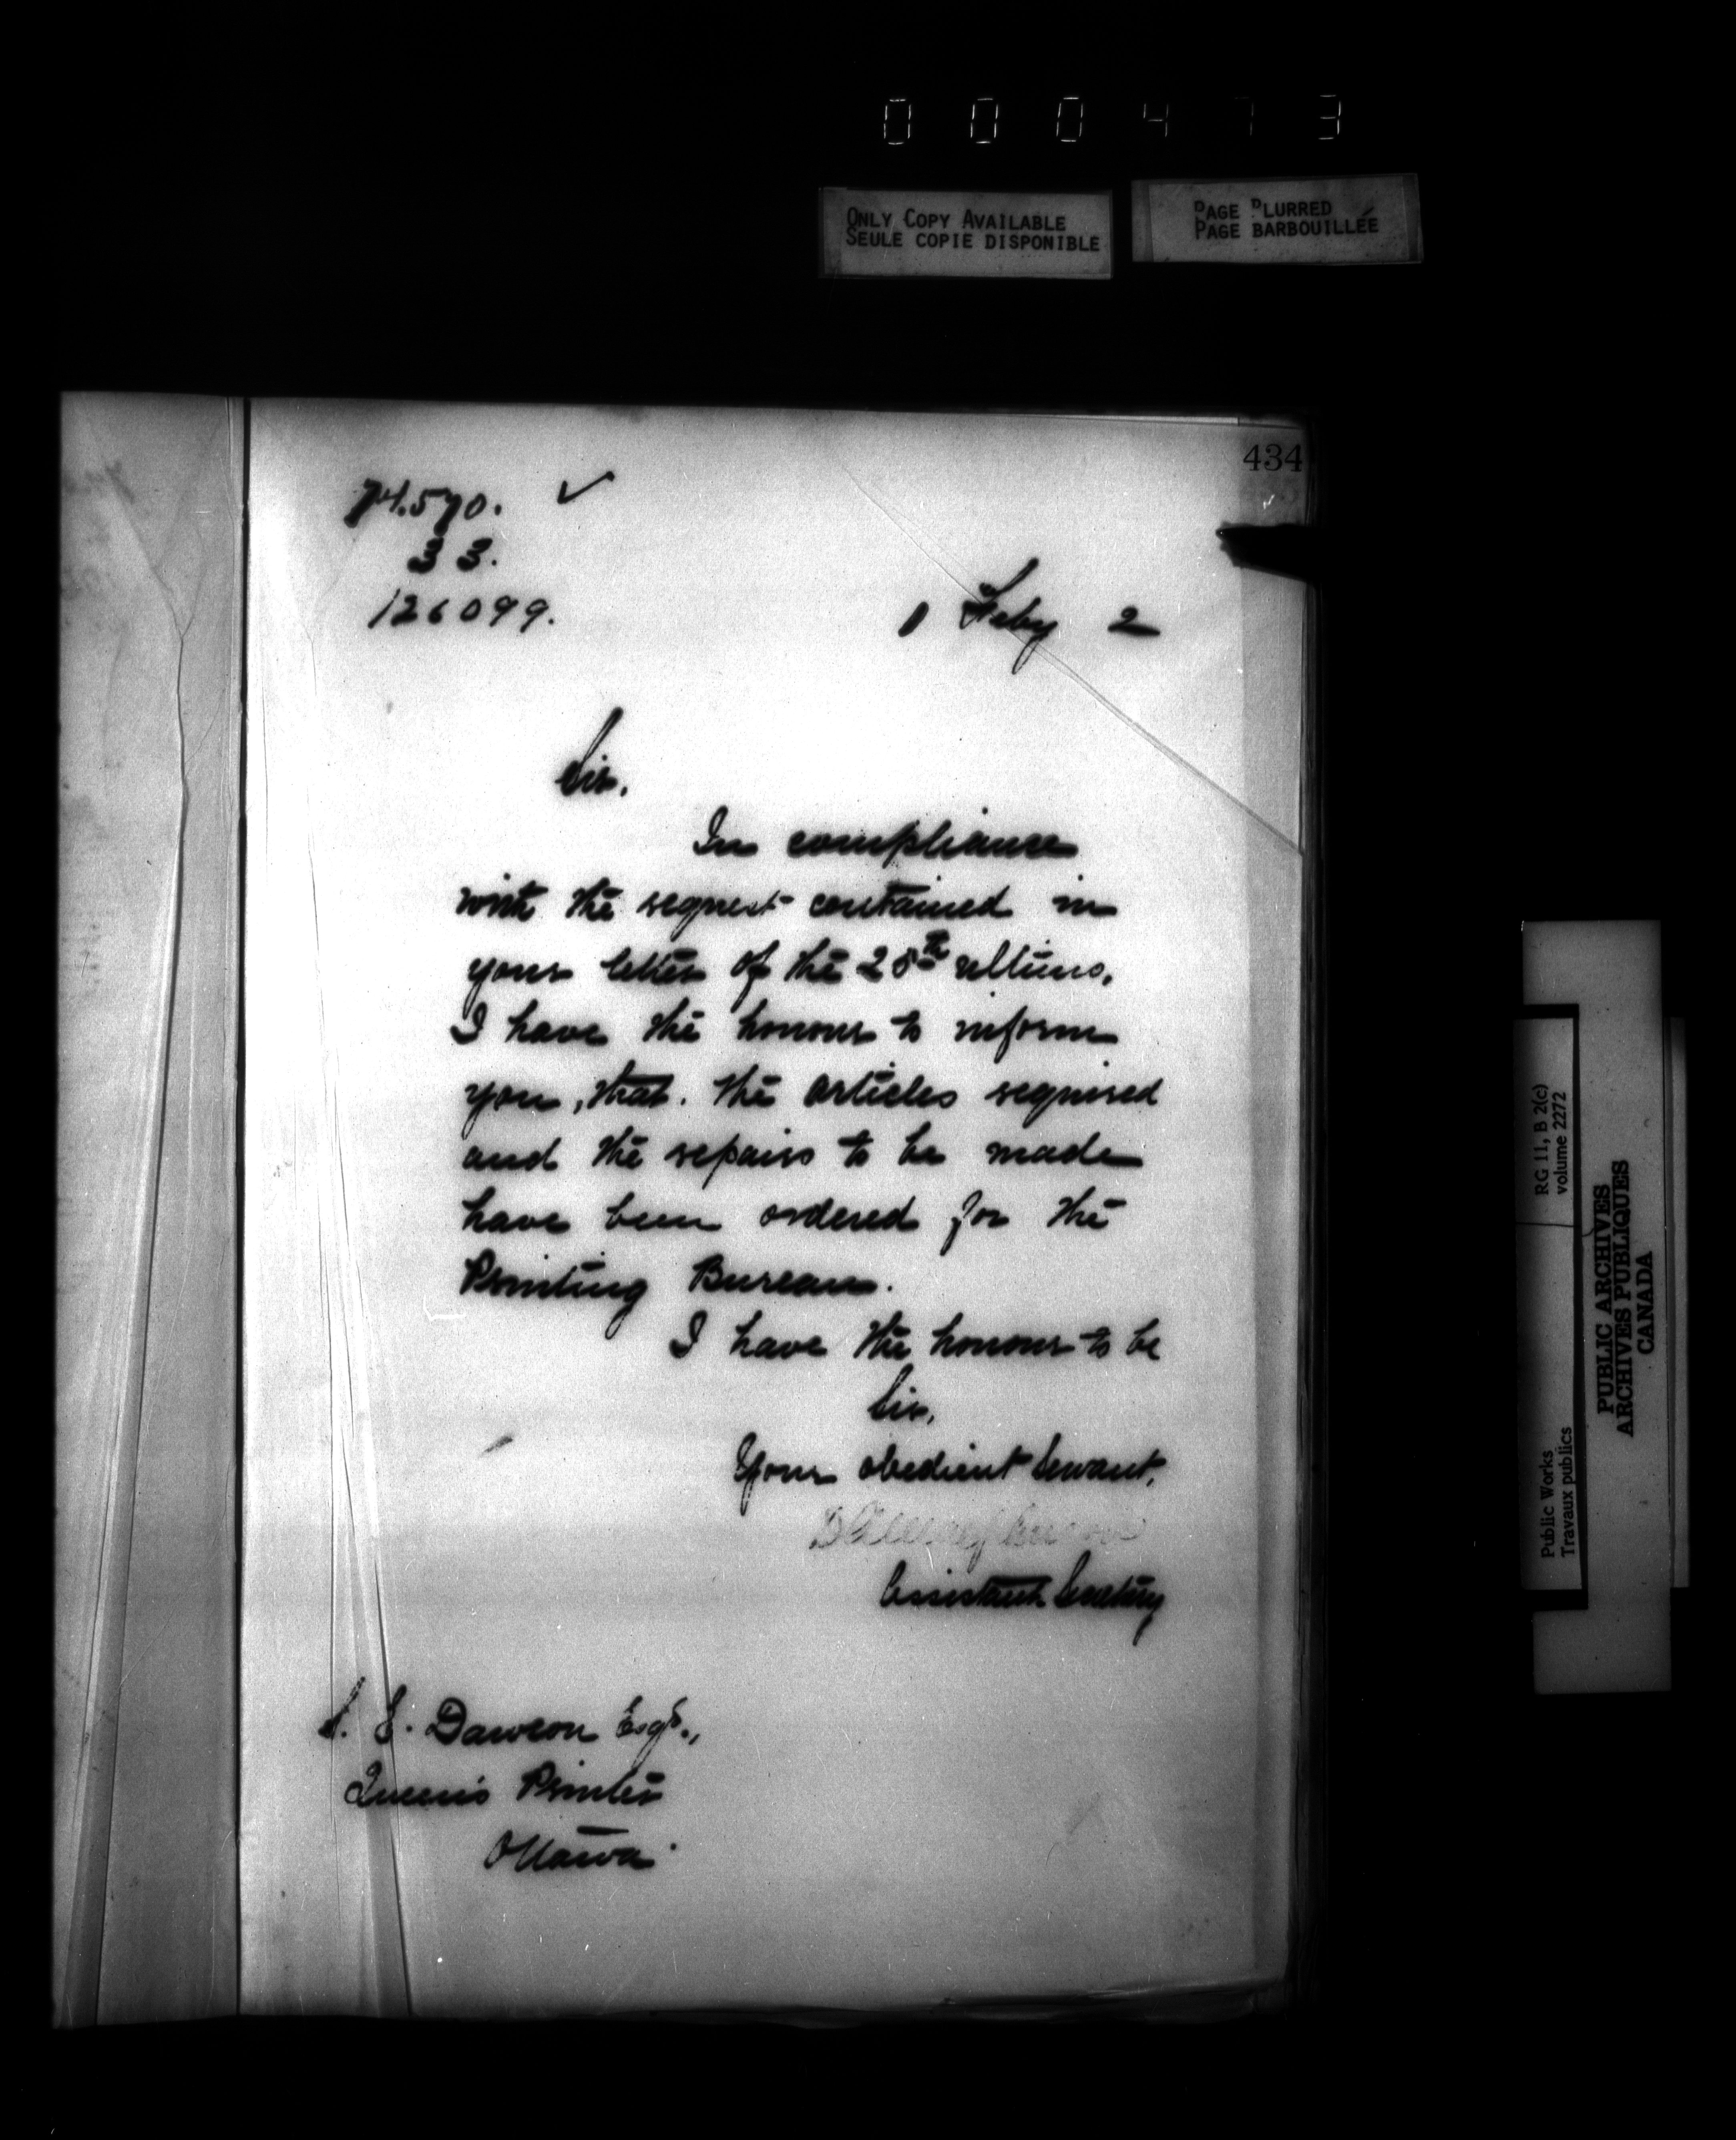 000473
ONLY COPY AVAILABLE
SEULE COPIE DISPONIBLE
PAGE BLURRED
PAGE BARBOUILLÉE
434
74.570. ✓
33.
126099.
1 Feby 2
Sir,
In compliance
with the request contained in
your letter of the 28th ultimo,
I have the honour to inform
you, that. the articles required
and the repairs to be made
have been ordered for the
Printing Bureau.
I have the honour to be
Sir,
Your obedient Servant,
Assistant Secretary
S. E. Dawson Esqr.,
Queen's Printer
Ottawa.
RG 11, B 2(c)
volume 2272
Public Works
Travaux publics
PUBLIC ARCHIVES
ARCHIVES PUBLIQUES
CANADA